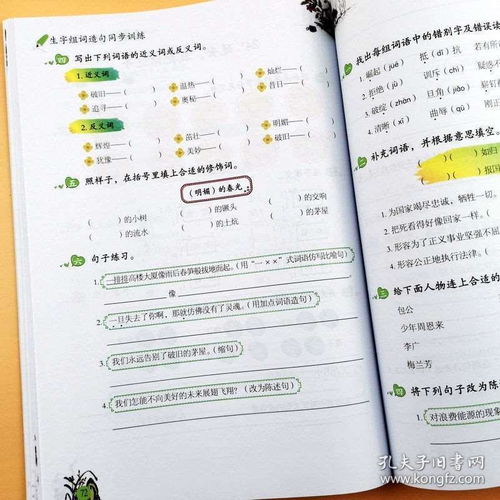 生字组词造句同步训练
四 写出下列词语的近义词或反义词。
1. 近义词
破旧——( ) 温热——( ) 灿烂——( )
追寻——( ) 奥秘——( ) 昔日——( )
2. 反义词
辉煌——( ) 茁壮——( ) 明媚——( )
犹豫——( ) 美妙——( ) 破旧——( )
五 照样子，在括号里填上合适的修饰词。
(明媚)的春光
( )的小树 ( )的镢头 ( )的交响
( )的流水 ( )的土炕 ( )的茅屋
六 句子练习。
1. 一排排高楼大厦像雨后春笋般拔地而起。(用“一××”式词语仿写比喻句)
像
2. 一旦失去了你啊，那就仿佛没有了灵魂。(用加点词语造句)
3. 我们永远告别了破旧的茅屋。(缩句)
4. 我们怎能不向美好的未来展翅飞翔？(改为陈述句)
72
找出每组词语中的错别字及错误读
1. 崛起(jué) 抵(dǐ)抗 若有所
2. 拒绝(jù) 训斥(chì) 疑惑不
3. 破绽(zhàn) 旦角(jiǎo) 籁籁
4. 清晰(xī) 曲辱(qū) 刚正
补充词语，并根据意思填空。
( )( )如归
( )( )报国
1. 为国家竭尽忠诚，牺牲一切。
2. 把死看得好像回家一样。(
3. 形容为了正义事业坚强不屈
4. 形容公正地执行法律。(
三 给下面人物连上合适的
包公
少年周恩来
李广
梅兰芳
四 将下列句子改为陈
1. 对浪费能源的现象
孔夫子旧书网
www.kongfz.com